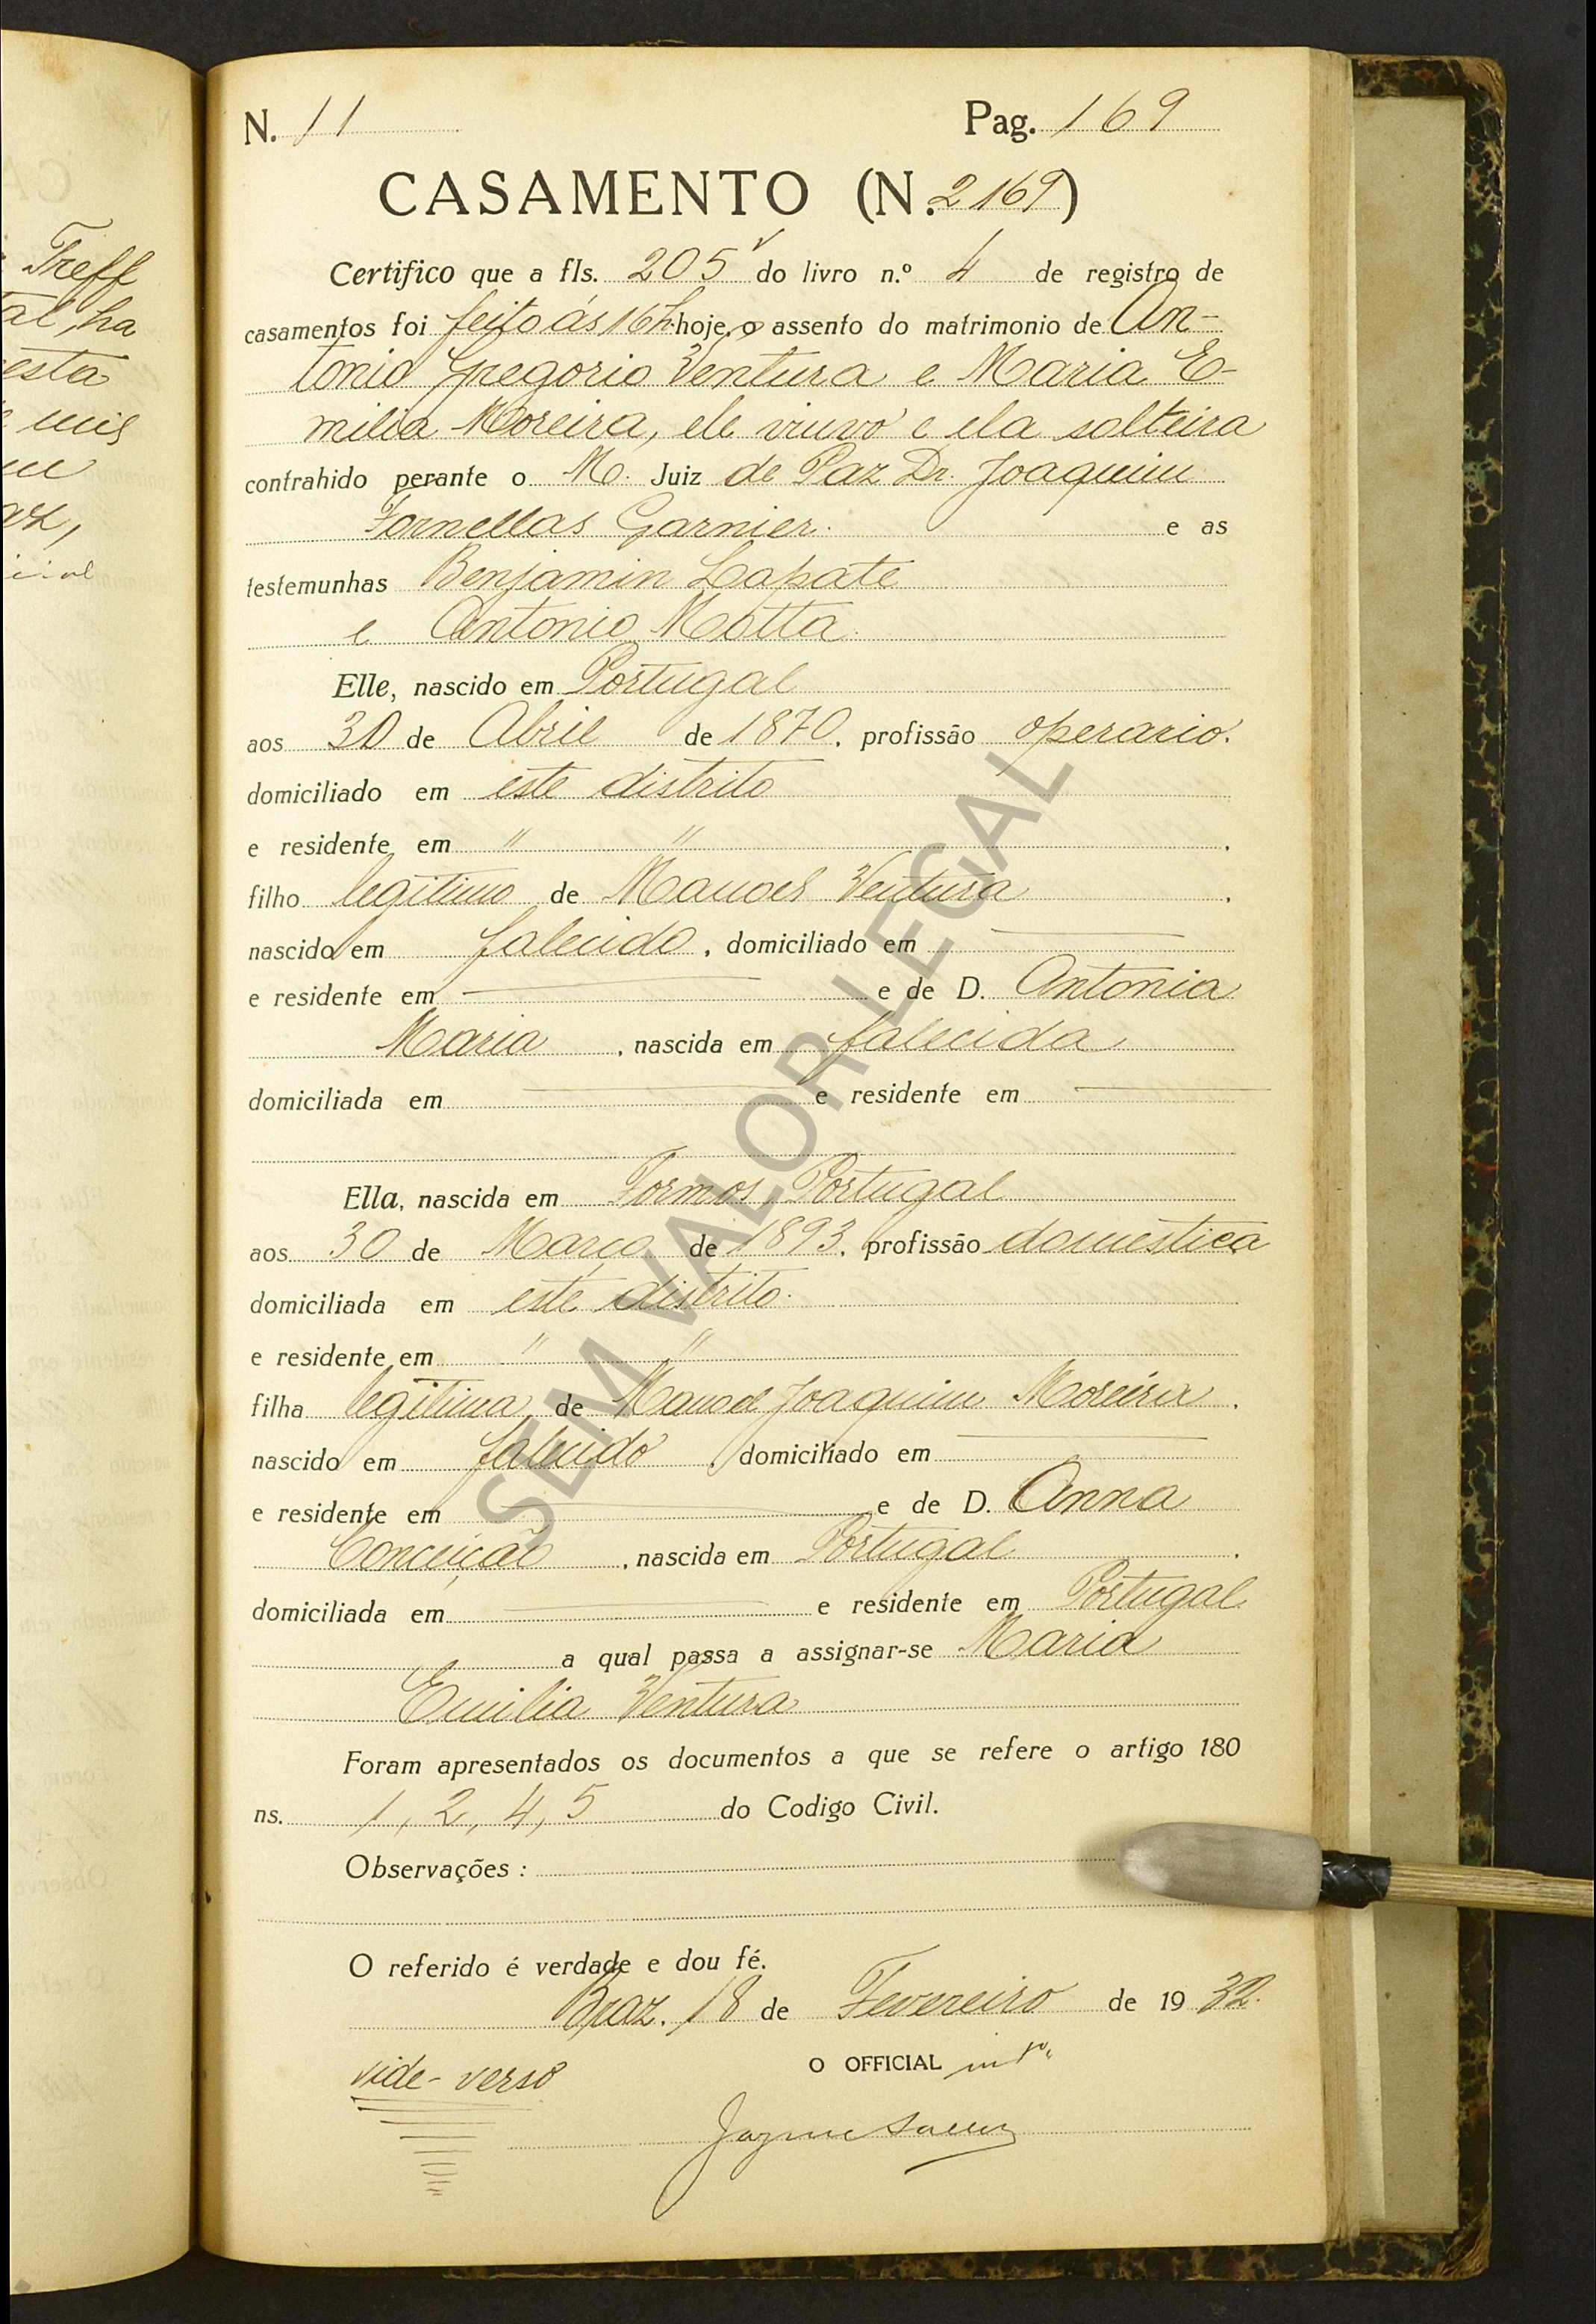 Treff
al, ha
esta
e mil
N. 11 Pag. 169
CASAMENTO (N. 2169)
Certifico que a fls. 205v do livro n.º 4 de registro de
casamentos foi feito ás 16h. hoje, o assento do matrimonio de An-
tonio Gregorio Ventura e Maria E-
milia Moreira, ele viuvo e ela solteira
contrahido perante o M. Juiz de Paz Dr. Joaquim
Fornellas Garnier. e as
testemunhas Benjamin Lapate
e Antonio Motta.
Elle, nascido em Portugal
aos 30 de Abril de 1870, profissão operario.
domiciliado em este distrito
e residente em " "
filho legitimo de Manoel Ventura
nascido em falecido, domiciliado em —
e residente em — e de D. Antonia
Maria, nascida em falecida
domiciliada em — e residente em —
Ella, nascida em Formos, Portugal
aos 30 de Março de 1893, profissão domestica
domiciliada em este distrito.
e residente em " "
filha legitima de Manoel Joaquim Moreira.
nascido em falecido, domiciliado em —
e residente em — e de D. Anna
Conceição, nascida em Portugal
domiciliada em — e residente em Portugal
a qual passa a assignar-se Maria
Emilia Ventura
Foram apresentados os documentos a que se refere o artigo 180
ns. 1, 2, 4, 5 do Codigo Civil.
Observações :
O referido é verdade e dou fé.
Braz. 18 de Fevereiro de 19 32.
vide-verso O OFFICIAL intº
Jayme
SEM VALOR LEGAL